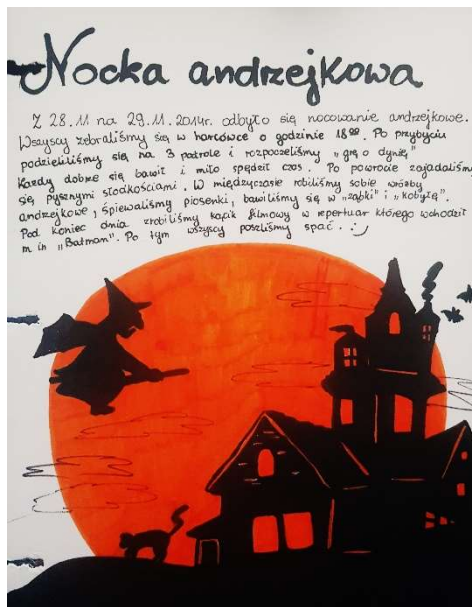 Nocka andrzejkowa
Z 28.11 na 29.11.2014r. odbyło się nocowanie andrzejkowe.
Wszyscy zebraliśmy się w harcówce o godzinie 18⁰⁰. Po przybyciu
podzieliliśmy się na 3 patrole i rozpoczeliśmy „grę o dynię"
Każdy dobrze się bawił i miło spędził czas. Po powrocie zajadaliśmy
się pysznymi słodkościami. W międzyczasie robiliśmy sobie wróżby
andrzejkowe, śpiewaliśmy piosenki, bawiliśmy się w „ząbki" i „kobyłę".
Pod koniec dnia zrobiliśmy kącik filmowy w repertuar którego wchodził
m.in „Batman". Po tym wszyscy poszliśmy spać. :)